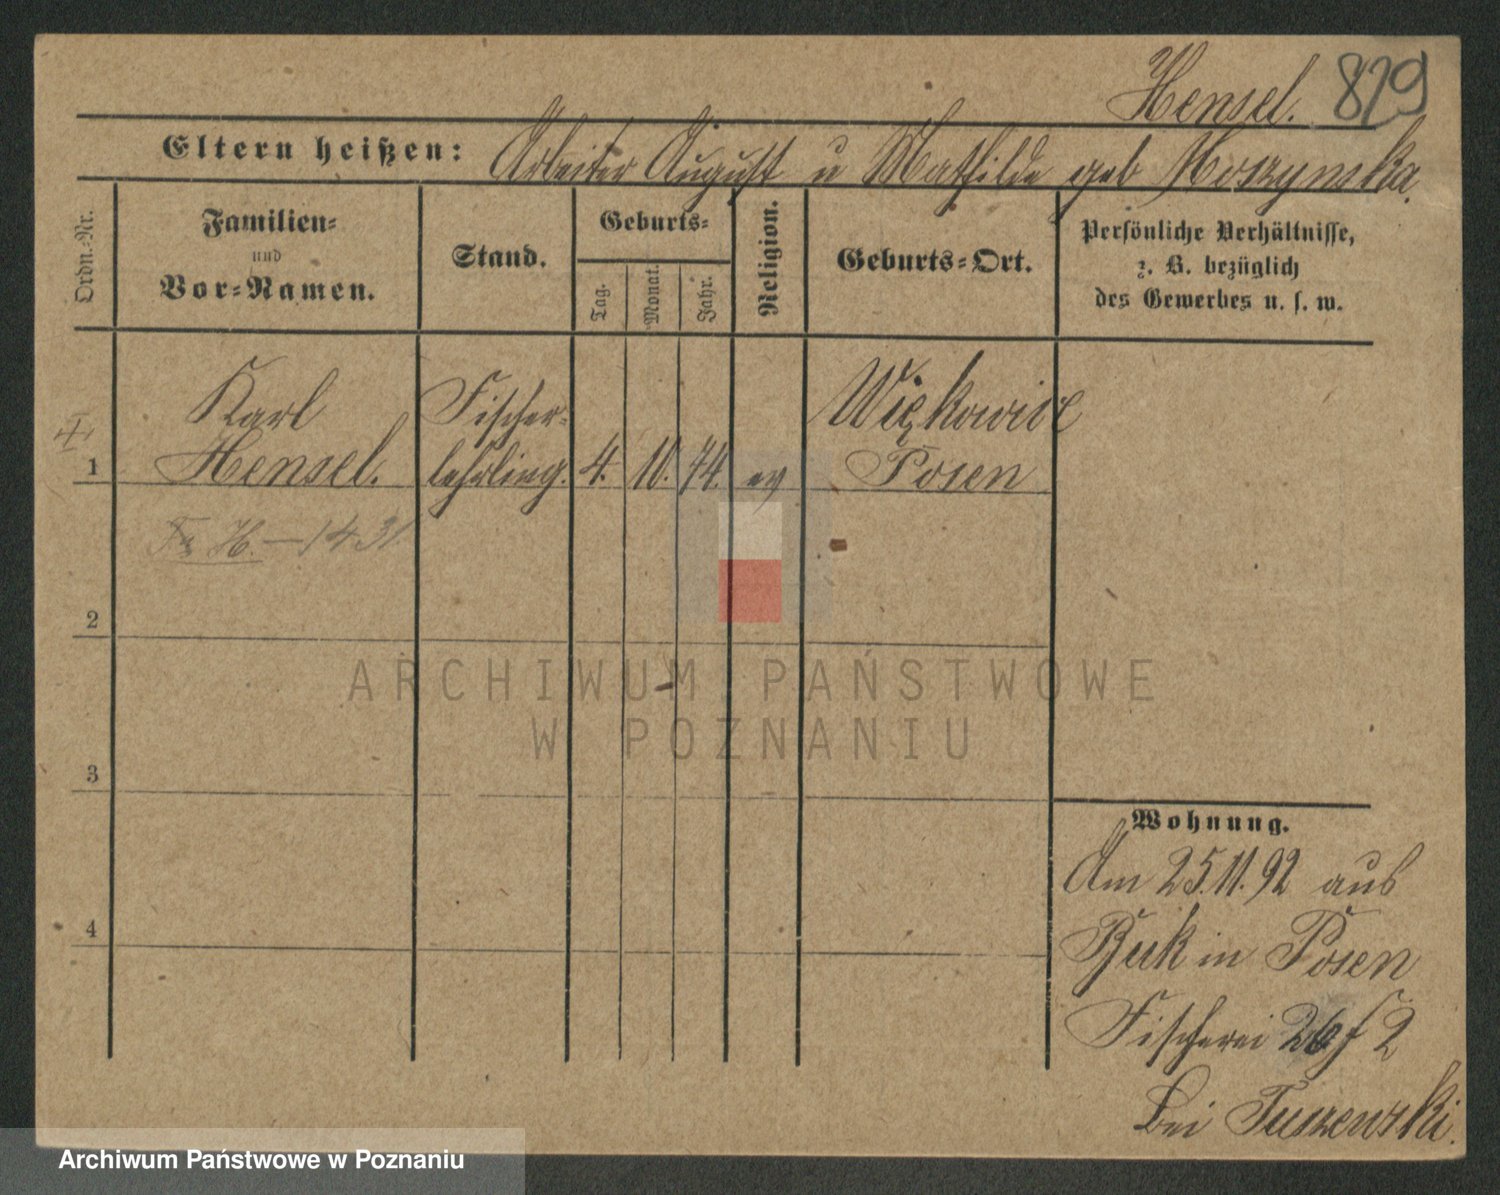 Hensel. 829
Eltern heißen: Arbeiter August u Mathilde geb Moszynska.
Ordn.-Nr.
Familien-
und
Vor-Namen.
Stand.
Geburts-
Tag.
Monat.
Jahr.
Religion.
Geburts-Ort.
Persönliche Verhältnisse,
z. B. bezüglich
des Gewerbes u. s. w.
Karl Fischer- Więkowice
1 Hensel. lehrling. 4. 10. 74. ev Posen
H. — 1431
2
3
4
Wohnung.
Am 25.11.92 aus
Buk in Posen
Fischerei 26 f 2
bei Tuszewski.
ARCHIWUM PAŃSTWOWE
W POZNANIU
Archiwum Państwowe w Poznaniu